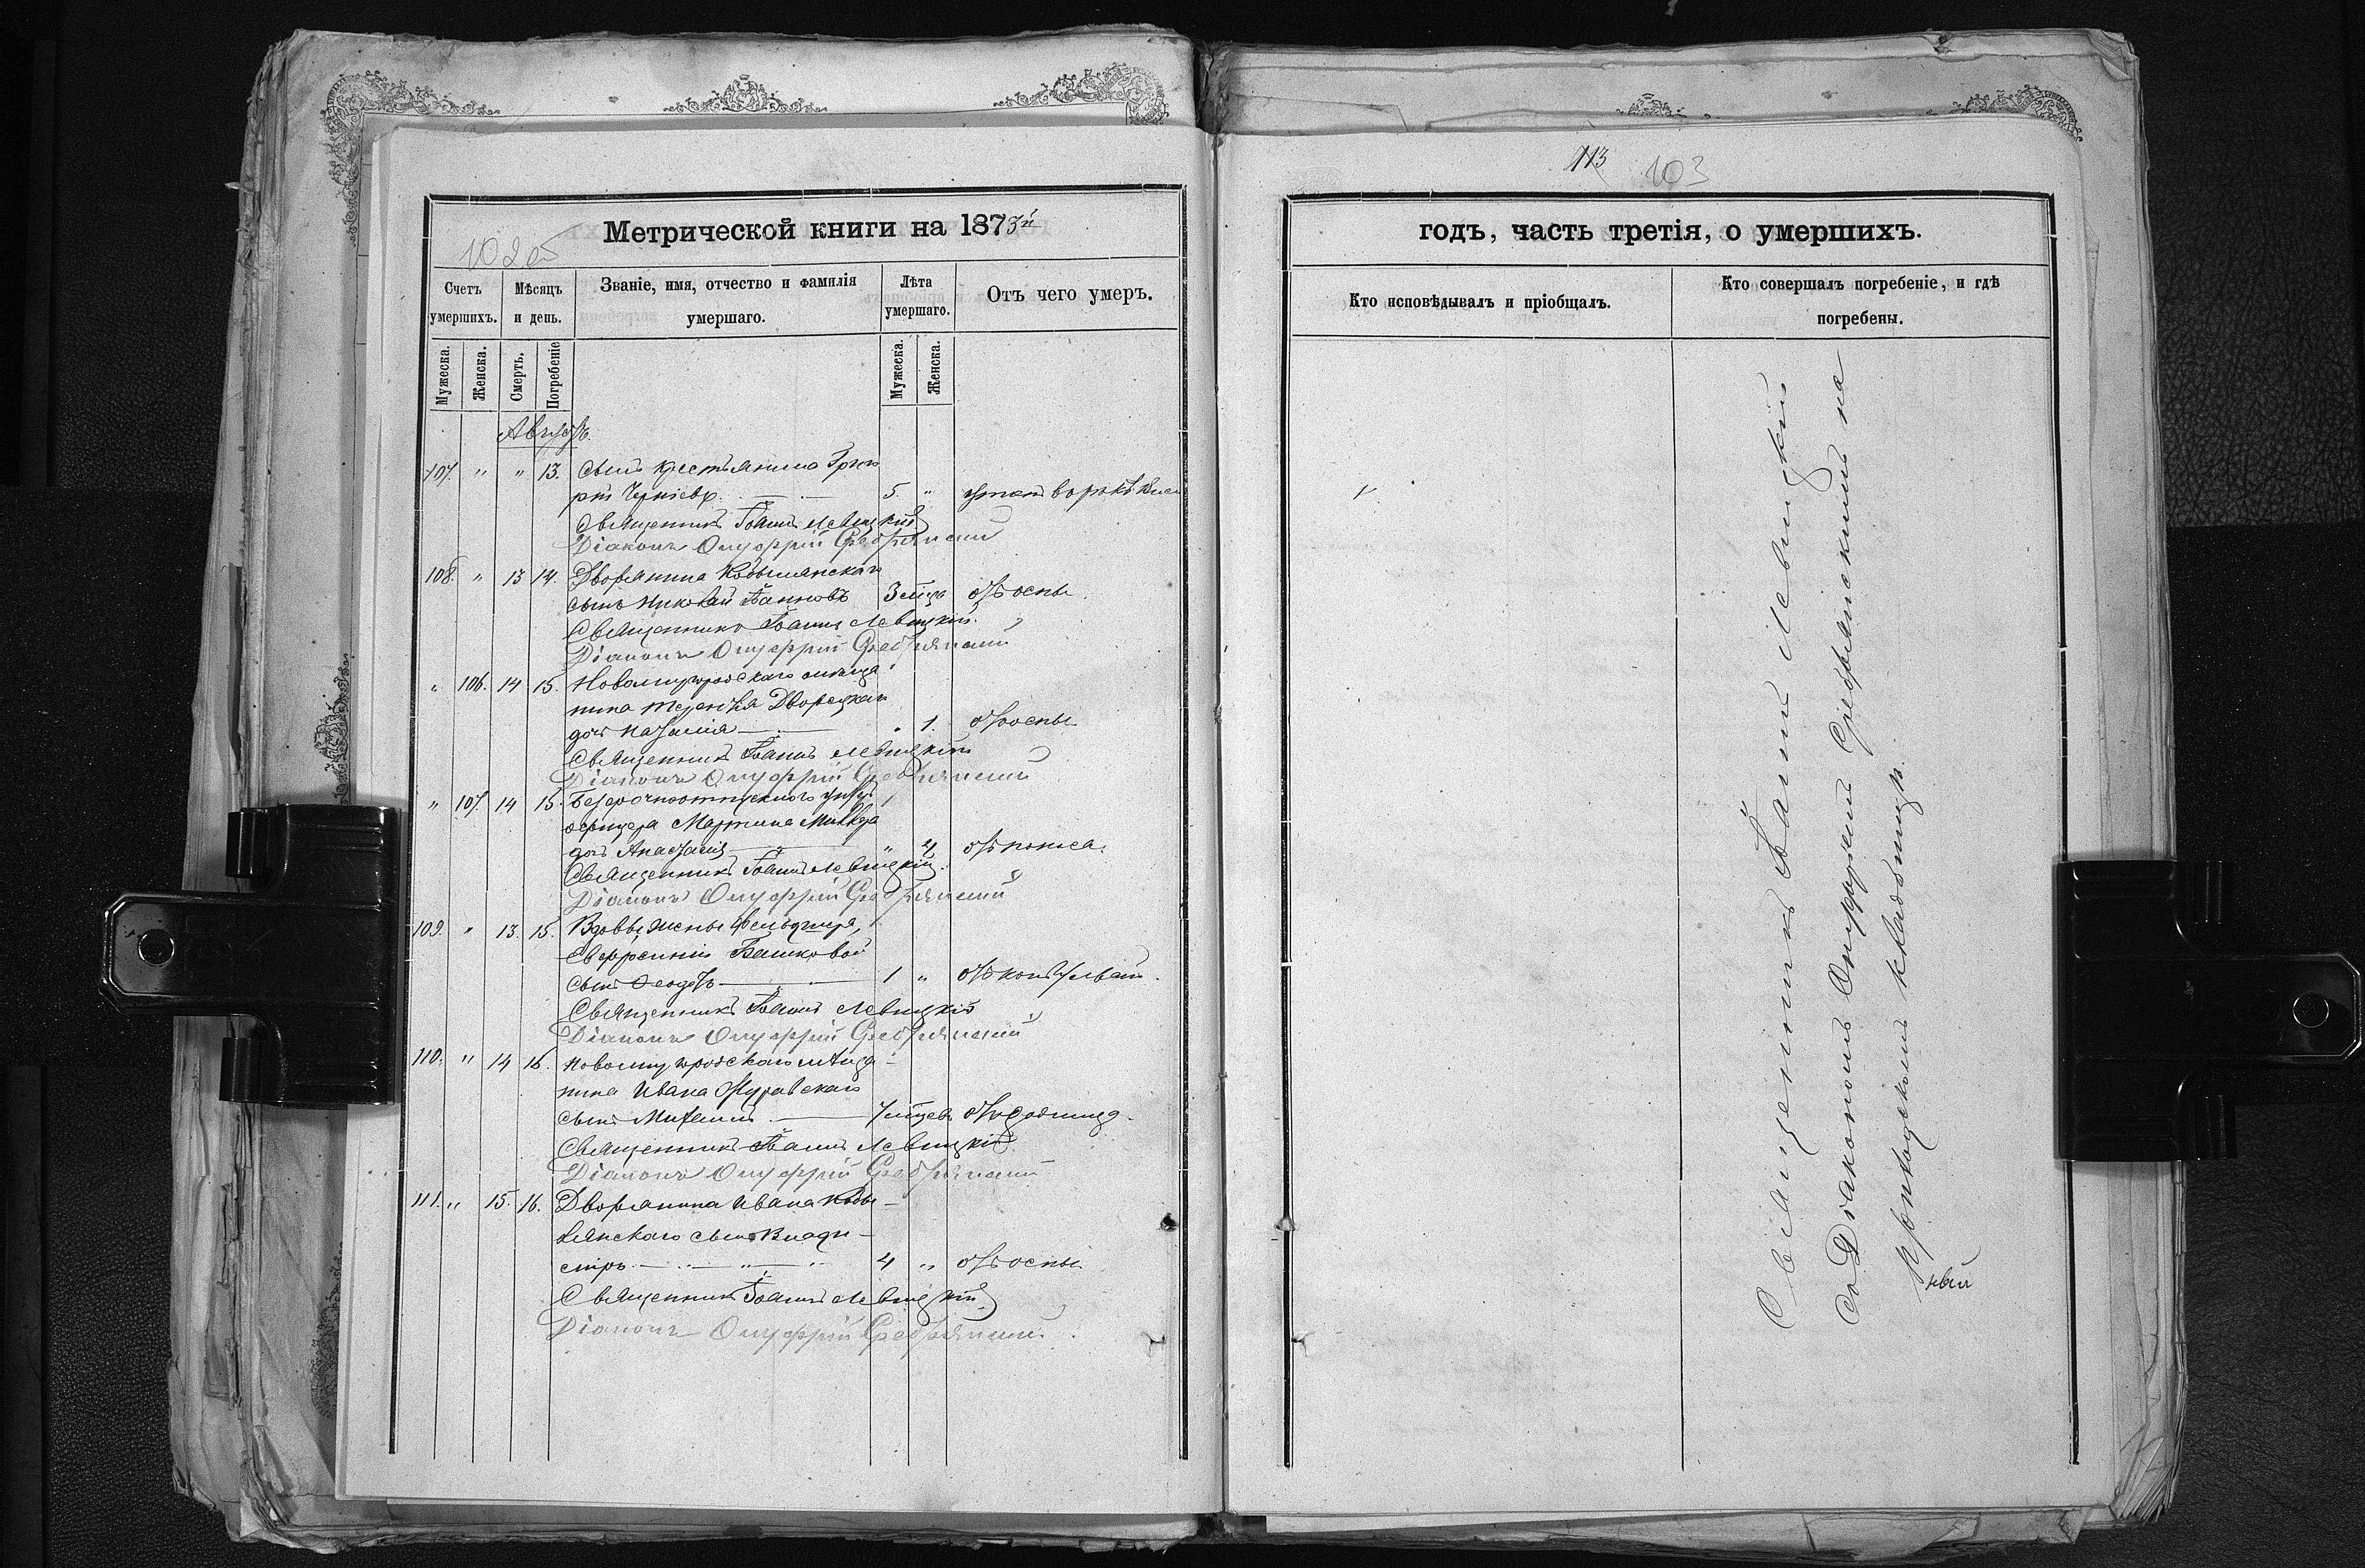 Метрической книги на 1873й
102об
Счетъ умершихъ.
Мѣсяцъ и день.
Званіе, имя, отчество и фамилія умершаго.
Лѣта умершаго.
Отъ чего умеръ.
Мужеска.
Женска.
Смерть.
Погребеніе
Мужеска.
Женска.
Августъ.
107. " " 13. Сынъ крестьянина
5. "
Священникъ Іоаннъ Левицкій
Діаконъ Онуфрій Сребрянскій
108. " 13 14. Дворянина Кобылянскаго
сынъ Николай 3 мѣца отъ оспы.
Священникъ Іоаннъ Левицкій.
Діаконъ Онуфрій Сребрянскій
" 106. 14 15. Новомиргородскаго мѣща
нина Дворецкаго
дочь " 1. отъ оспы
Священникъ Іоаннъ Левицкій
Діаконъ Онуфрій Сребрянскій
" 107. 14 15. Безсрочноотпускного унтеръ
офицера Мартина
дочь Анастасія " 4 отъ поноса.
Священникъ Іоаннъ Левицкій.
Діаконъ Онуфрій Сребрянскій
109. " 13. 15. Вдовы жены фельдшера,
Евфросиніи Башковой
сынъ Феодоръ 1 "
Священникъ Іоаннъ Левицкій
Діаконъ Онуфрій Сребрянскій
110. " 14 16. Новомиргородскаго мѣща-
нина Ивана Журавскаго
сынъ Михаилъ. 7 мѣцевъ
Священникъ Іоаннъ Левицкій.
Діаконъ Онуфрій Сребрянскій
111. " 15. 16. Дворянина Ивана Кобы-
лянскаго сынъ Влади-
миръ 4 " отъ оспы
Священникъ Іоаннъ Левицкій
Діаконъ Онуфрій Сребрянскій.
113 103
годъ, часть третія, о умершихъ.
Кто исповѣдывалъ и пріобщалъ.
Кто совершалъ погребеніе, и гдѣ погребены.
Священникъ Іоаннъ Левицкій
съ Діакономъ Онуфріемъ Сребрянскимъ на
приходскомъ кладбищѣ.